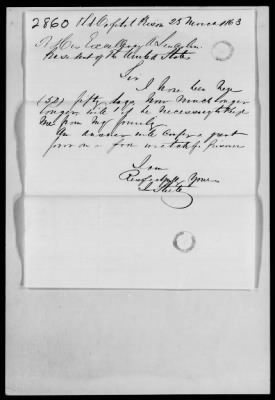 2860 Old Capitol Prison 25 March 1863
To His Excellency A Lincoln
President of the United States
Sir
I have been here
(52) fifty days how much longer
longer will it be necessary to keep
me from my family
An answer will confer a great
favor on a poor wretched prisoner
I am
Respectfully Yours